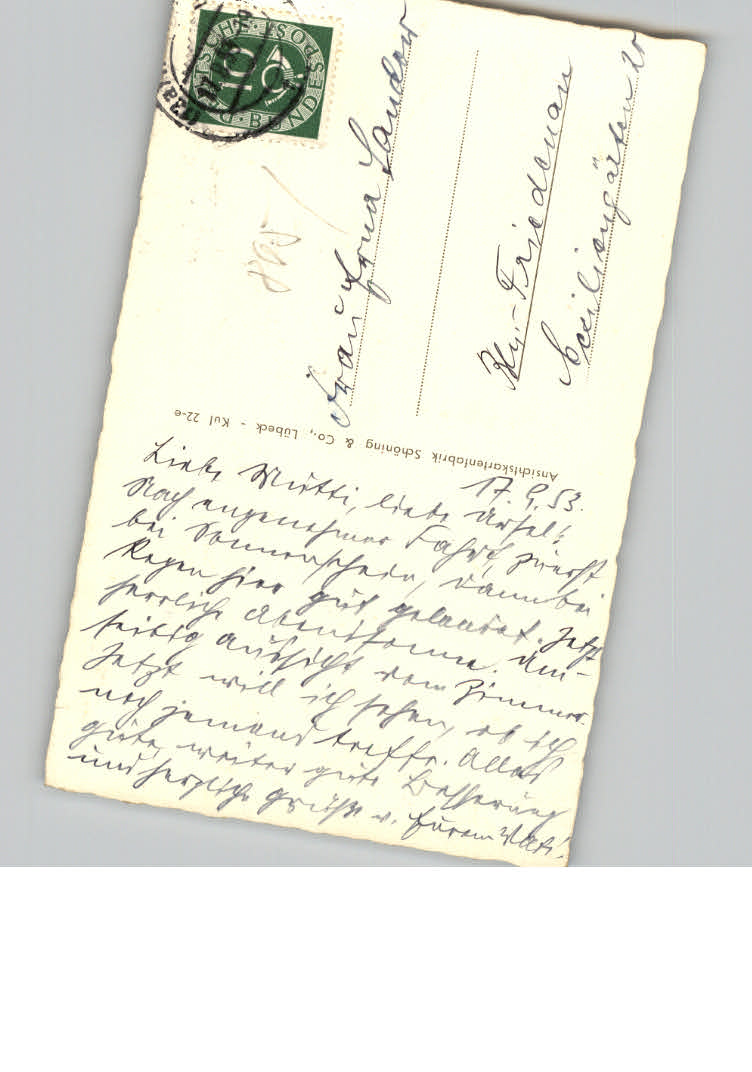 17. 9. 53.
Liebe Mutti, liebe Ursel!
Nach angenehmer Fahrt, zuerst
bei Sonnenschein, dann bei
Regen hier gut gelandet. Jetzt
herrliche Abendsonne.
Aussicht vom Zimmer.
Jetzt will ich sehen, ob ich
noch jemand treffe. Alles
Gute, weiter gute Besserung
und herzliche Grüße v. Eurem Vati.
Ansichtskartenfabrik Schöning & Co., Lübeck - Kul 22-e
Frau Erna Sandow
Bln.-Friedenau
Ceciliengärten 20
DEUTSCHE BUNDESPOST
10